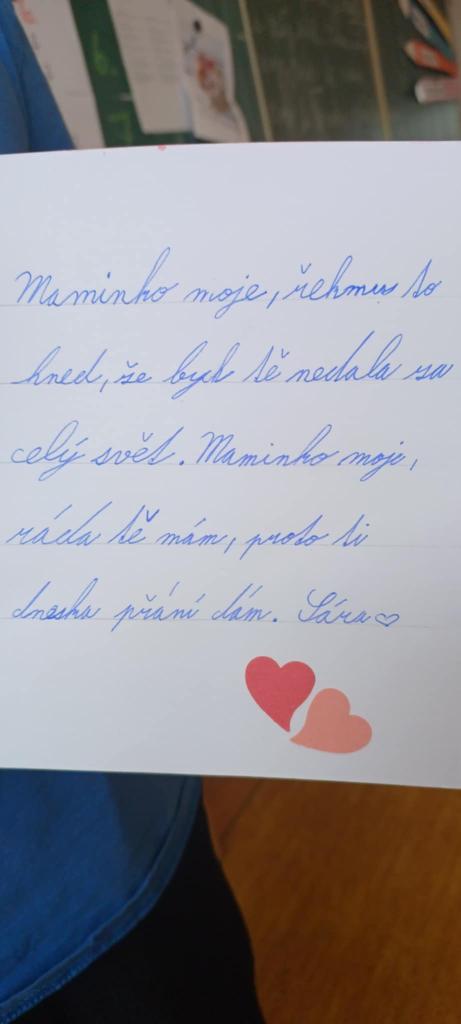 Maminko moje, řeknu to
hned, že bych tě nedala za
celý svět. Maminko moje,
ráda tě mám, proto ti
dneska přání dám. Sára♡